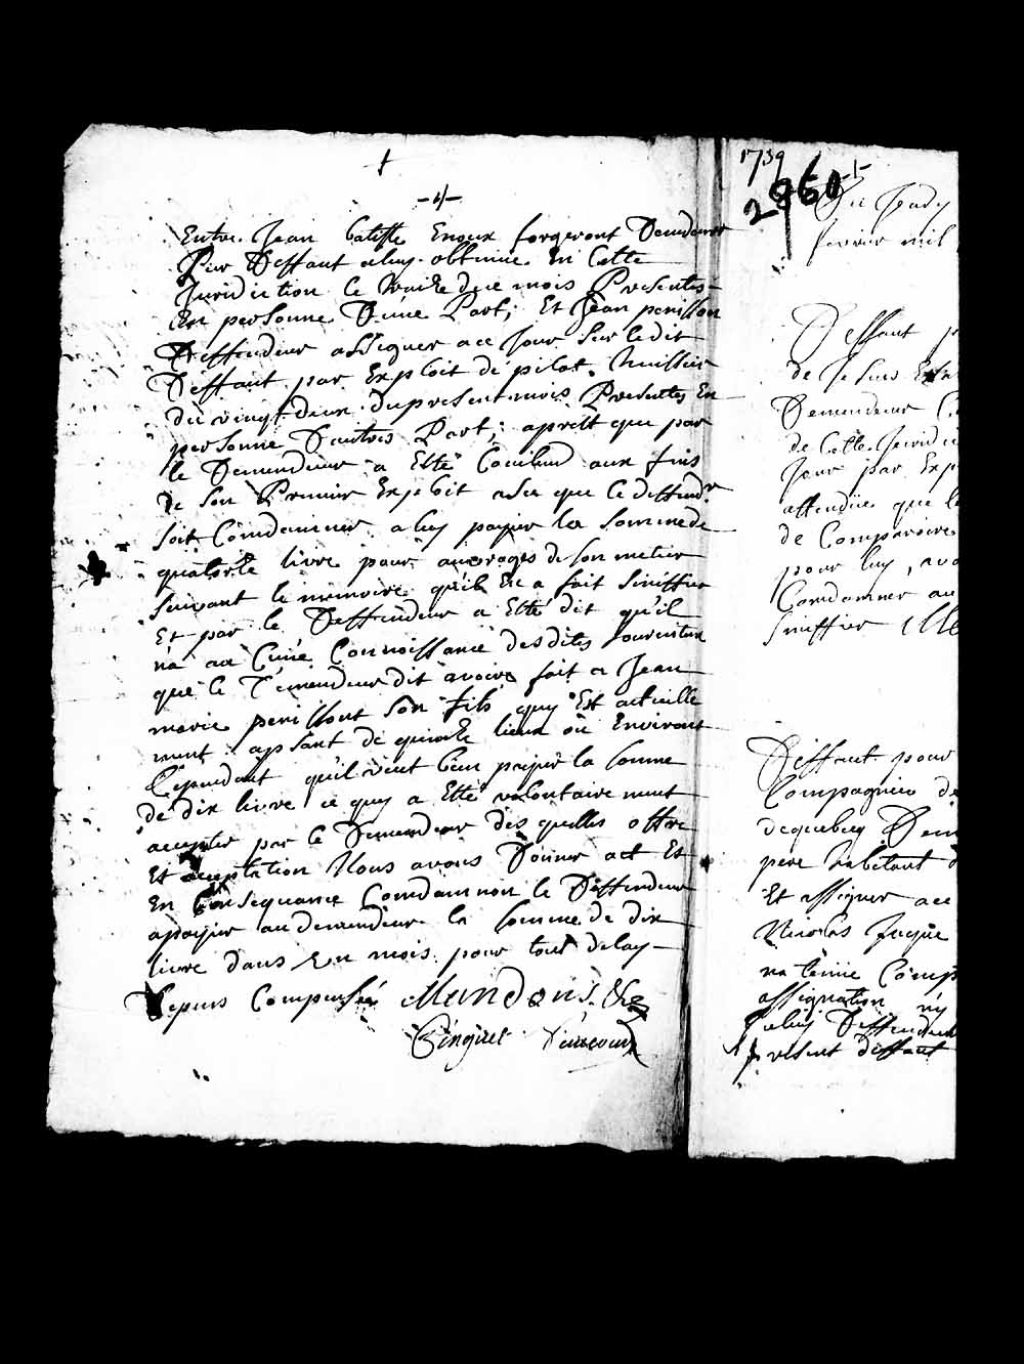 -4-
Entre Jean batiste Enoux forgeront Demdeur
Par Deffaut a luy obtenue En Cette
Juridiction le treize de ce mois Presentes
En personne D'une Part; Et Jean perillon
Deffendeur assigner a ce Jour Sur le dit
Deffaut par Exploit de pilot. huissier
du vingt deux du present mois Presentes En
personne D'autres Part; aprest que par
le Demendeur a Esté Conclud aux fins
de Son Premier Exploit a sce que le deffendr
soit Comdemner a luy payer la somme de
quatorze livre pour auvrages de son metier
Suivant le memoire qu'il En a fait Siniffier
Et par le Deffendeur a Esté dit qu'il
n'a aucune Connoissance des dites fourniture
que le Demendeur dit avoire fait a Jean
marie perillont Son fils quy Est actuelle
ment apsant de quinze lieux ou Environt
Cependant qu'il veut bien payer la somme
de dix livre ce quy a Esté volontairement
accepter par le Demendeur des quelles offre
Et acceptation Nous avons Donner act Et
En Consequance Comdamnon le Deffendeur
a payer au demendeur la somme de dix
livre dans Un mois pour tout delay
Depens Compensée Mandons &c
1739
2960
-1-
Du Jeudy
fevrier mil
Deffaut
de Jesuis
Demendeur
de Cette Juridi
Jour par Exp
attendue que le
de Comparoire
pour luy, avo
Comdamner au
Siniffier
Deffaut pour
Compagnie de
de quebecq Dem
pere habitant
Et assigner a ce
Nicolas
na tenue Comp
assignation ny
a luy Deffendeur
present deffaut